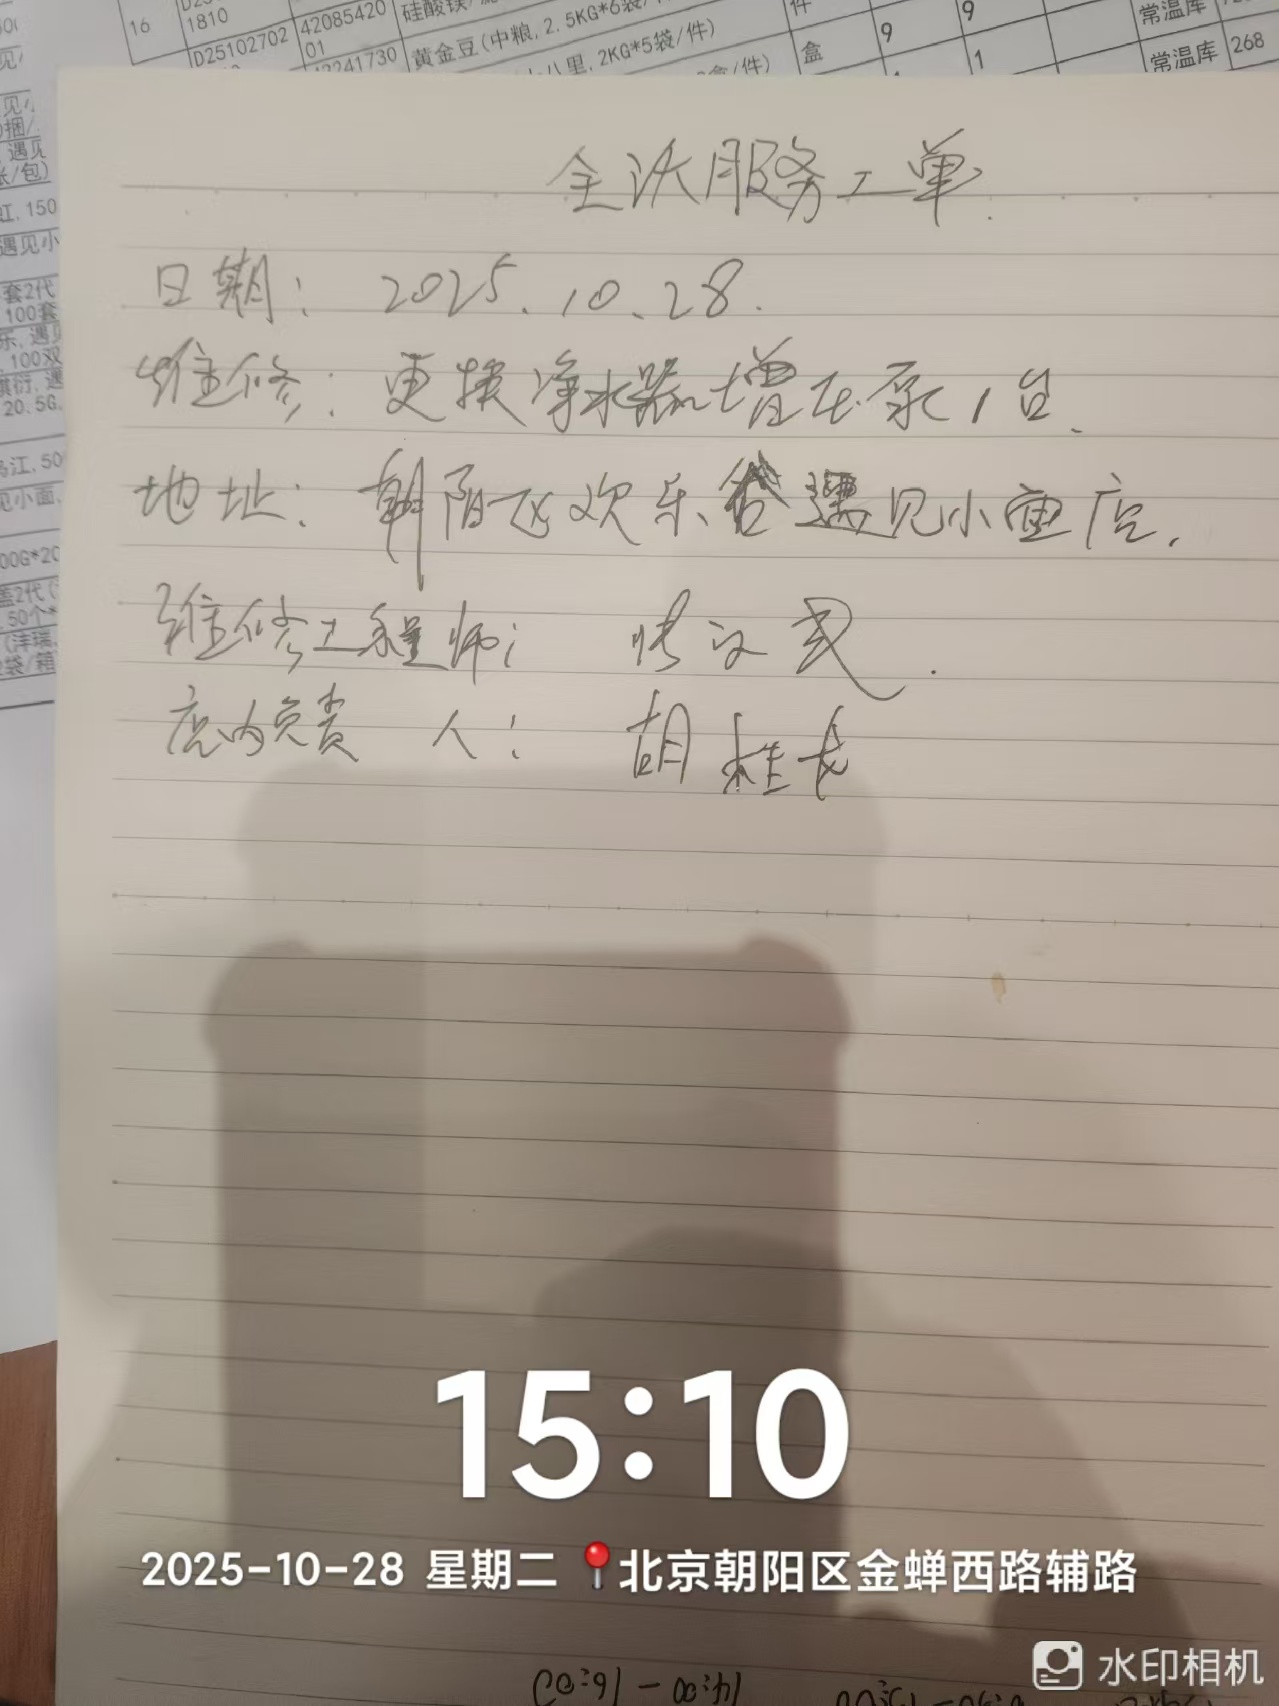 16
1810
42085420
D25102702
01
黄金豆(中粮,2.5KG*6袋/
件
9
9
常温库
12241730
八里,2KG*5袋/件)
盒
9
1
常温库
268
盒/件)
张/包)
虹,150
遇见小
套2代
100套
乐,遇见
100双
20.5G
乌江,50
见小面,
00G*20
盖2代(
50个*
(沣瑞,
袋/箱
全沃服务工单.
日期: 2025.10.28.
维修: 更换净水器增压泵1台.
地址: 朝阳区欢乐谷遇见小面店.
维修工程师: 文武.
店内负责人: 胡桂龙
15:10
2025-10-28 星期二 北京朝阳区金蝉西路辅路
水印相机